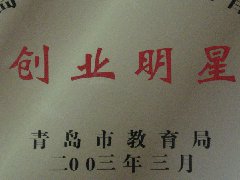 创业明星
青岛市教育局
二00三年三月